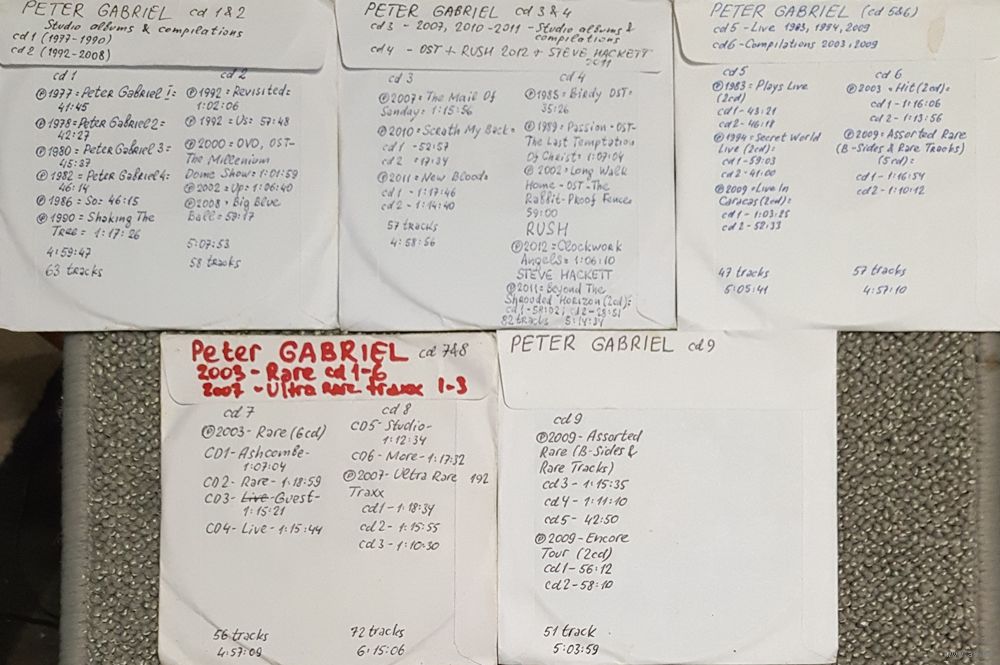 PETER GABRIEL cd 1&2
Studio albums & compilations
cd 1 (1977-1990)
cd 2 (1992-2008)
cd 1
Ⓟ1977 = Peter Gabriel I =
41:45
1978 = Peter Gabriel 2 =
42:27
Ⓟ1980 = Peter Gabriel 3 =
45:37
Ⓟ1982 = Peter Gabriel 4 =
46:14
Ⓟ1986 = So = 46:15
Ⓟ1990 = Shaking The
Tree = 1:17:26
4:59:47
63 tracks
cd 2
Ⓟ1992 = Revisited =
1:02:06
Ⓟ1992 = Us = 57:48
Ⓟ2000 = OVO, OST-
The Millenium
Dome Show = 1:01:59
Ⓟ2002 = Up = 1:06:40
Ⓟ2008 = Big Blue
Ball = 59:17
5:07:53
58 tracks
PETER GABRIEL cd 3 & 4
cd 3 - 2007, 2010-2011 - Studio albums &
compilations
cd 4 - OST + RUSH 2012 + STEVE HACKETT
2011
cd 3
Ⓟ2007 = The Mail On
Sunday = 1:15:56
Ⓟ2010 = Scrath My Back =
cd 1 - 52:57
cd 2 = 17:34
Ⓟ2011 = New Blood =
cd 1 - 1:17:46
cd 2 - 1:14:40
57 tracks
4:58:56
cd 4
Ⓟ1985 = Birdy OST =
35:26
Ⓟ1989 = Passion - OST-
The Last Temptation
Of Christ = 1:07:04
Ⓟ2002 = Long Walk
Home - OST - The
Rabbit-Proof Fence =
59:00
RUSH
Ⓟ2012 = Clockwork
Angels = 1:06:10
STEVE HACKETT
Ⓟ2011 = Beyond The
Shrouded Horizon (2cd) =
cd 1 - 58:02; cd 2 - 28:51
82 tracks 5:14:34
PETER GABRIEL (cd 5&6)
cd 5 - Live 1983, 1994, 2009
cd 6 - Compilations 2003, 2009
cd 5
Ⓟ1983 = Plays Live
(2cd)
cd 1 - 43:21
cd 2 - 46:18
Ⓟ1994 = Secret World
Live (2cd) =
cd 1 - 59:03
cd 2 - 41:00
Ⓟ2009 = Live In
Caracas (2cd) =
cd 1 - 1:03:25
cd 2 - 52:33
47 tracks
5:05:41
cd 6
Ⓟ2003 = Hit (2cd) =
cd 1 - 1:16:06
cd 2 - 1:13:56
Ⓟ2009 = Assorted Rare
(B-Sides & Rare Tracks)
(5cd) =
cd 1 - 1:16:54
cd 2 - 1:10:12
57 tracks
4:57:10
Peter GABRIEL cd 7&8
2003 - Rare cd 1-6
2007 - Ultra Rare Traxx 1-3
cd 7
Ⓟ2003 - Rare (6cd)
CD1 - Ashcombe -
1:07:04
CD2 - Rare - 1:18:59
CD3 - Live - Guest -
1:15:21
CD4 - Live - 1:15:44
56 tracks
4:57:09
cd 8
CD5 - Studio -
1:12:34
CD6 - More - 1:17:32
Ⓟ2007 - Ultra Rare 192
Traxx
cd 1 - 1:18:34
cd 2 - 1:15:55
cd 3 - 1:10:30
72 tracks
6:15:06
PETER GABRIEL cd 9
cd 9
Ⓟ2009 - Assorted
Rare (B-Sides &
Rare Tracks)
cd 3 - 1:15:35
cd 4 - 1:11:10
cd 5 - 42:50
Ⓟ2009 - Encore
Tour (2cd)
cd 1 - 56:12
cd 2 - 58:10
51 track
5:03:59